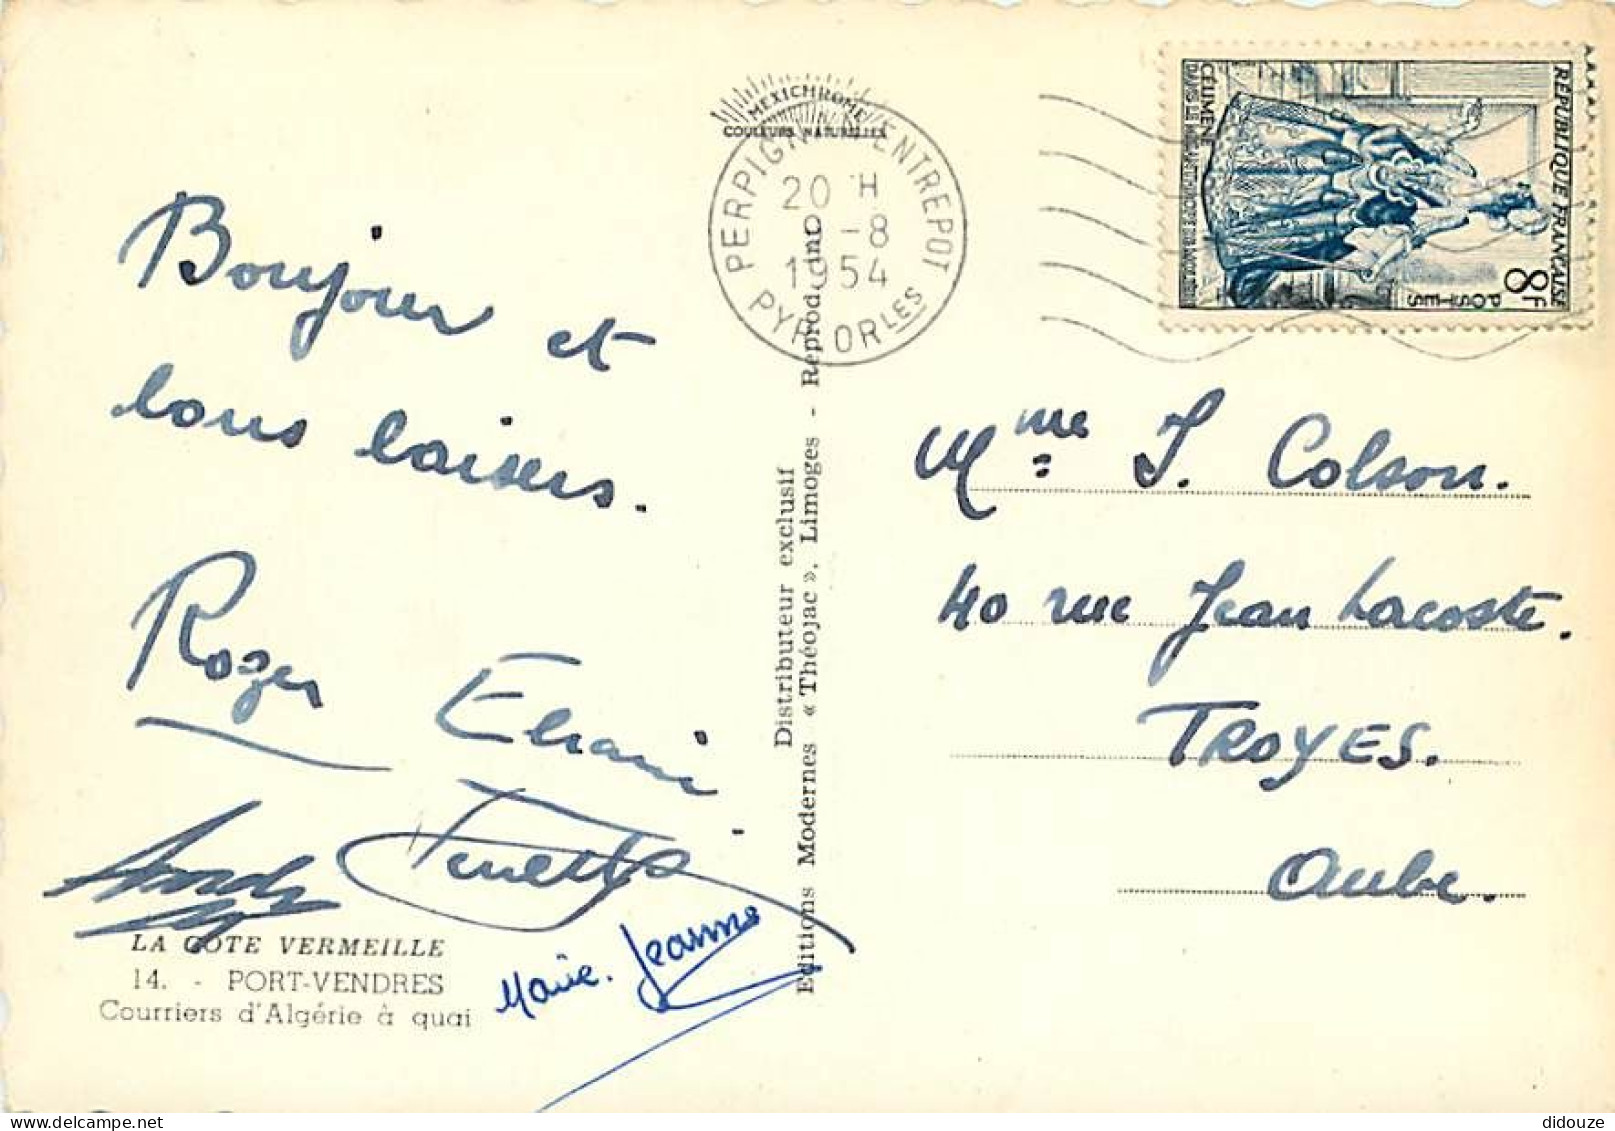 Bonjour et
bons baisers.
Roger
Andy
Marie. Jeanne
LA COTE VERMEILLE
14. - PORT-VENDRES
Courriers d'Algérie à quai
MEXICHROME
COULEURS NATURELLES
Distributeur exclusif
Editions Modernes « Théojac », Limoges - Reprod. int.
PERPIGNAN ENTREPOT
20 H
-8
1954
PYR. ORLES
RÉPUBLIQUE FRANÇAISE
8F
POSTES
CÉLIMÈNE
DANS LE MISANTHROPE
Mme J. Colson.
40 rue Jean Lacoste.
TROYES.
Aube.
didouze